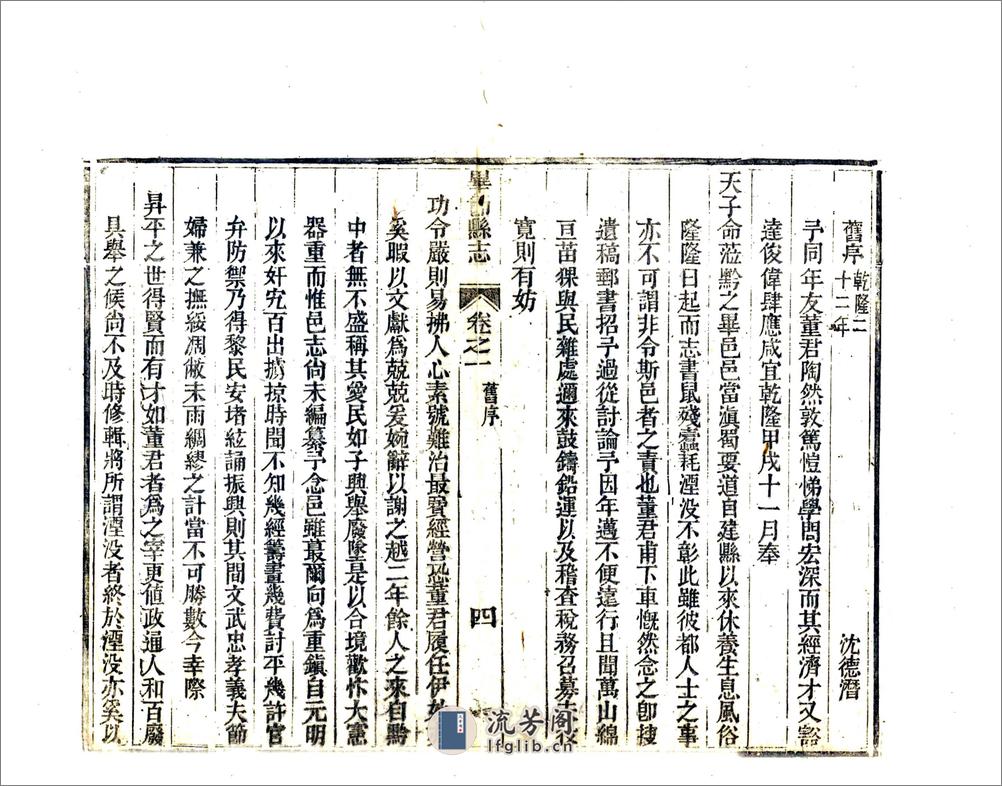 舊序 乾隆二十二年 沈德潛
予同年友董君陶然敦篤愷悌學問宏深而其經濟才又谿
達俊偉肆應咸宜乾隆甲戌十一月奉
天子命蒞黔之畢邑邑當滇蜀要道自建縣以來休養生息風俗
隆隆日起而志書鼠殘蠹耗湮沒不彰此雖彼都人士之事
亦不可謂非令斯邑者之責也董君甫下車慨然念之卽搜
遺稿郵書招予過從討論予因年邁不便遠行且聞萬山綿
亘苗猓與民雜處邇來鼓鑄鉛運以及稽查稅務召募
寬則有妨
畢節縣志 卷之一 舊序 四
功令嚴則易拂人心素號難治最費經營恐董君履任伊始
奚暇以文獻爲兢兢爰婉辭以謝之越二年餘人之來自黔
中者無不盛稱其愛民如子興舉廢墜是以合境歡忭大憲
器重而惟邑志尚未編纂予念邑雖蕞爾向爲重鎮自元明
以來奸宄百出擄掠時聞不知幾經籌畫幾費討平幾許官
弁防禦乃得黎民安堵絃誦振興則其間文武忠孝義夫節
婦兼之撫綏凋敝未雨綢繆之計當不可勝數今幸際
昇平之世得賢而有才如董君者爲之宰更值政通人和百廢
具舉之候尚不及時修輯將所謂湮沒者終於湮沒亦奚以
流芳阁
lfglib.cn